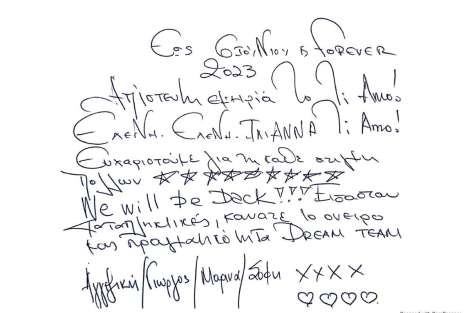 Εως 6 Ιουνιου & FOREVER
2023
Απιστευτη εμπειρία Ti Amo!
Ελενη. Ελενη. ΙΛΙΑΝΝΑ Ti Amo!
Ευχαριστούμε για τη καθε στιγμη
☆☆☆☆☆☆☆☆
We will be Back!!! Εισασταν
καταπληκτικές, κανατε το ονειρο
μας πραγματικότητα DREAM TEAM
Αγγελική / Γιωργος / Μαρια / Σοφη XXXX
♡♡♡♡